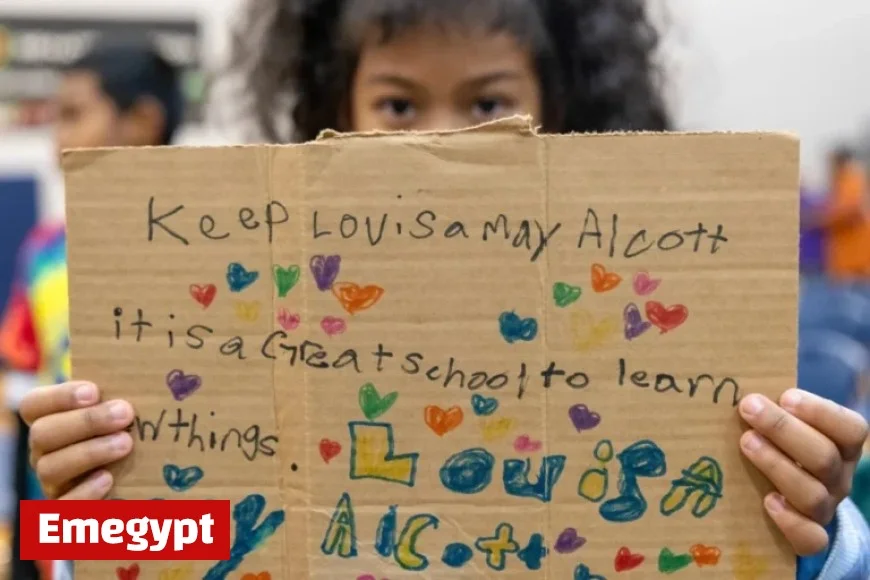 Keep Lovisa May Alcott
it is a Great school to learn
w things.
Louisa
Alcott
Emegypt